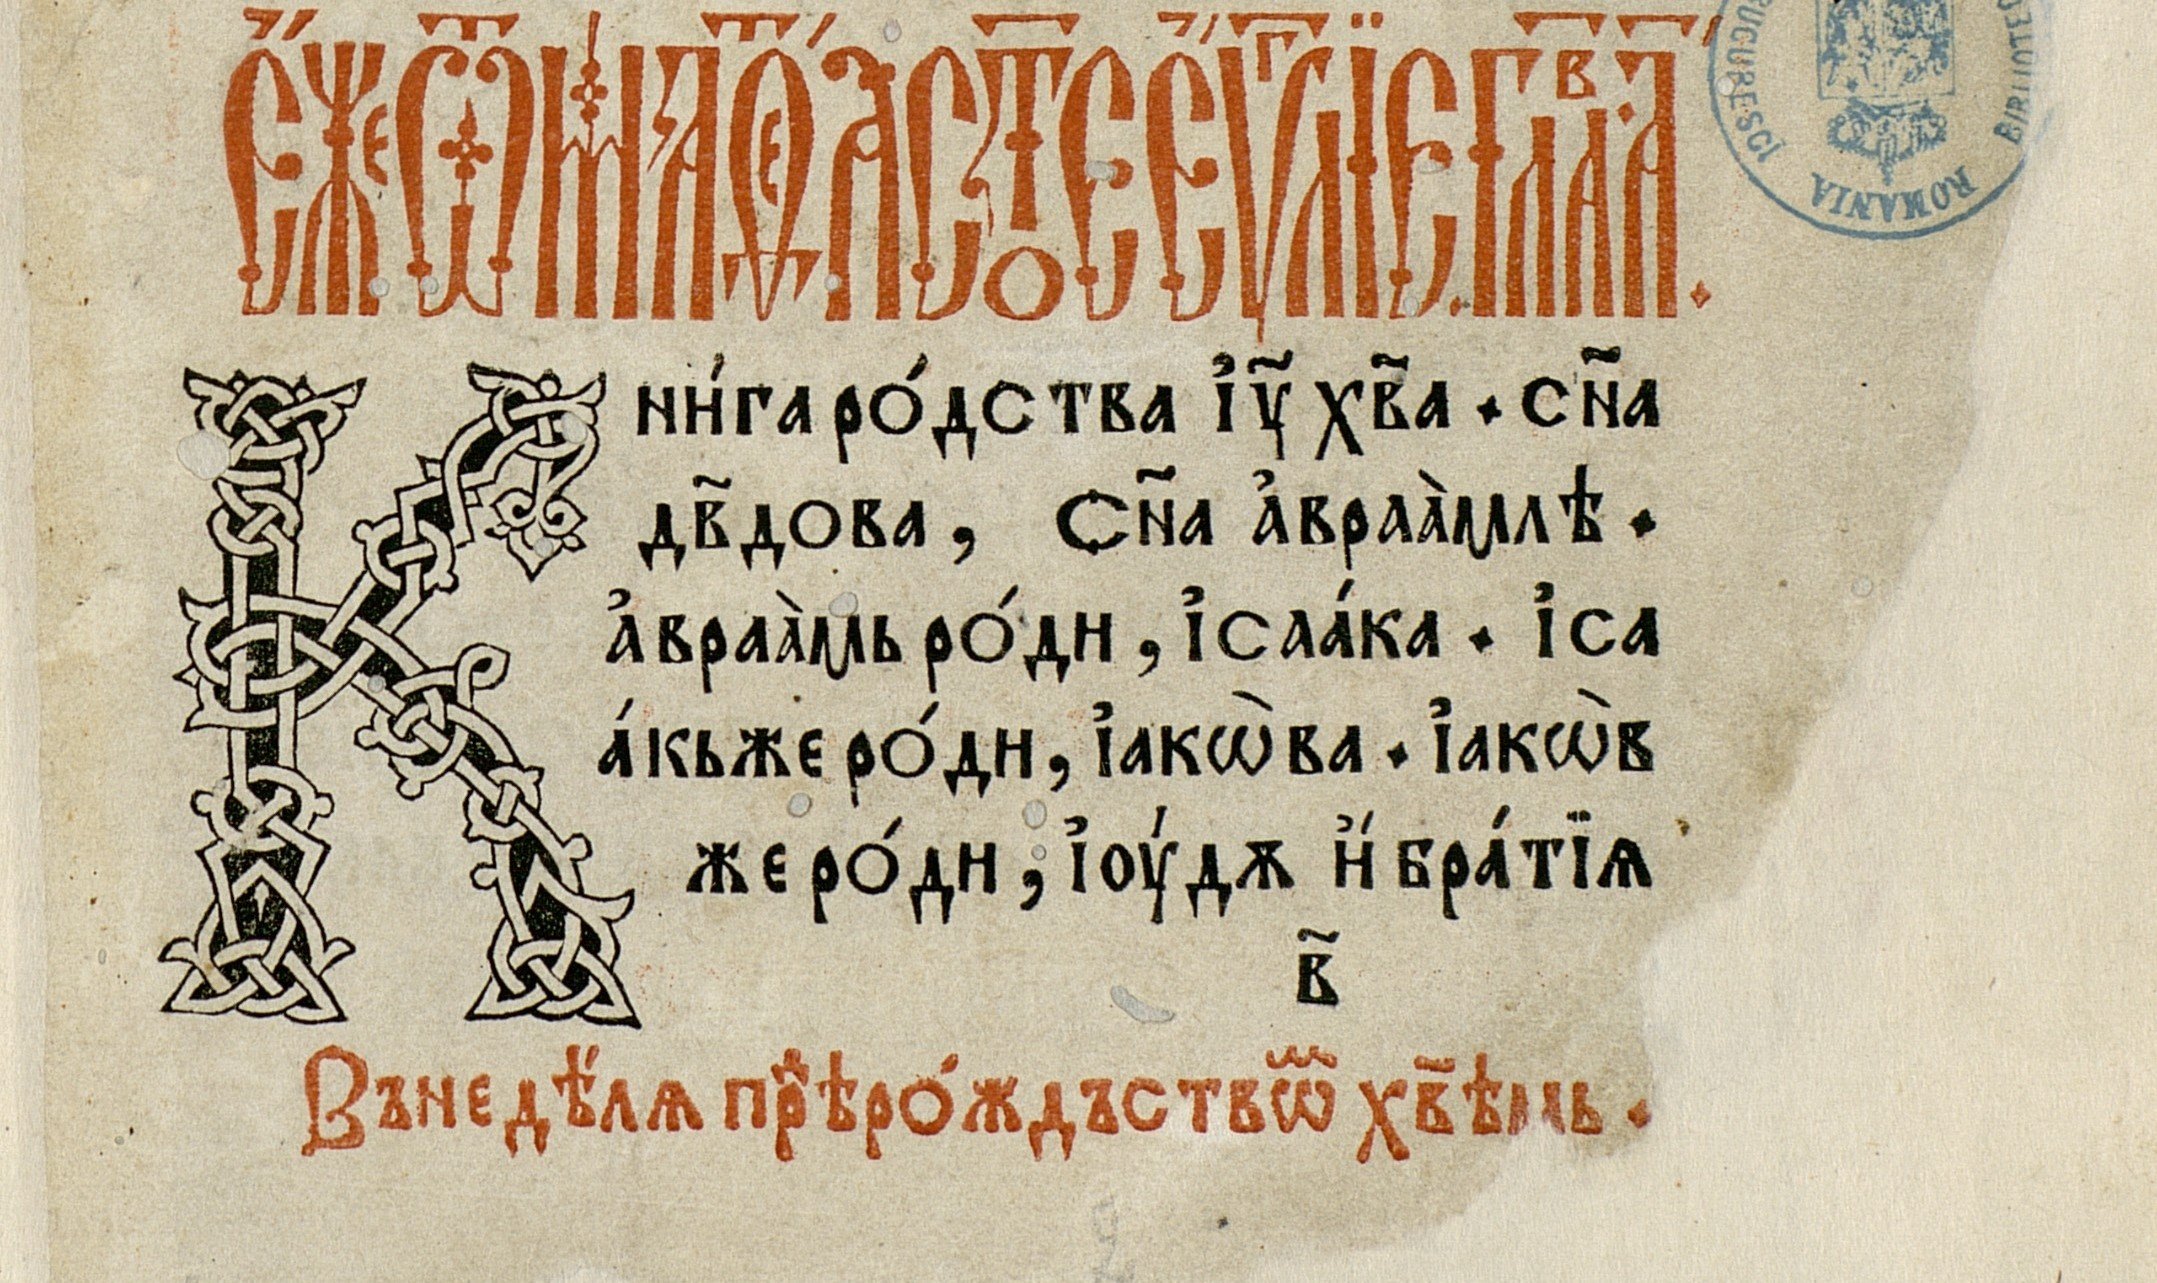 Є҆́же ѿ маѳеа ст҃ое е҆ѵⷢ҇лїе. глава҃ а҃.
Кни́га ро́дства і҆ц҃ хв҃а · сн҃а
дв҃дова, сн҃а а҆враа̀млѣ ·
а҆враа̀мь ро́ди, і҆саа́ка · і҆са
а́кьже ро́ди, і҆акѡ̀ва · і҆акѡ̀в
же ро́ди, і҆оу́дѫ и҆́ бра́тїѧ
в҃
Въ недѣ́лѧ прⷣѣ ро́ждъствѡⷨ҇ хв҃ѣмь ·
BUCURESCI
ROMANIA